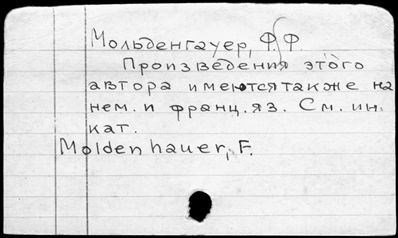 Мольденгауер, Ф. Ф.
Произведения этого
автора имеются также на
нем. и франц. яз. См. ин.
кат.
Moldenhauer, F.